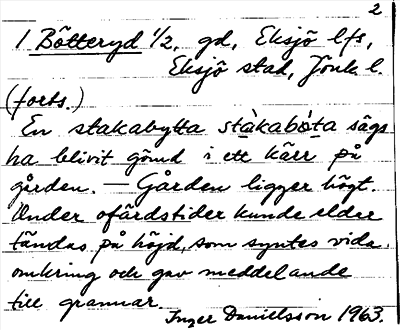 2
1 Bötteryd 1/2, gd, Eksjö lfs,
Eksjö stad, Jönk l.
(forts.)
En stakabytta stàkabò́ta sägs
ha blivit gömd i ett kärr på
gården. — Gården ligger högt.
Under ofärdstider kunde eldar
tändas på höjd, som syntes vida
omkring och gav meddelande
till grannar.
Inger Danielsson 1963.